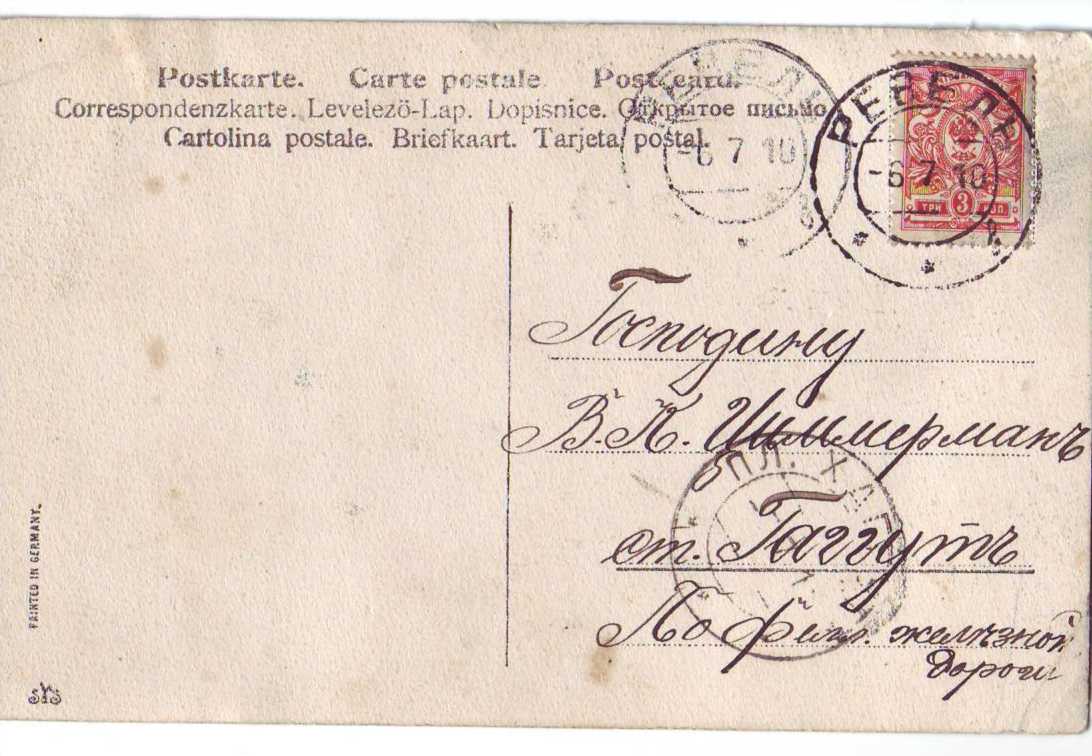 Postkarte. Carte postale Post card.
Correspondenzkarte. Levelező-Lap. Dopisnice. Открытое письмо
Cartolina postale. Briefkaart. Tarjeta postal.
РЕВЕЛЬ
-6 7 10
РЕВЕЛЬ
-6 7 10
ТРИ 3 КОП.
Господину
В. К. Циммерманъ
ПЛ.
ст. Гаггутъ
По желѣзной
дороги
PRINTED IN GERMANY.